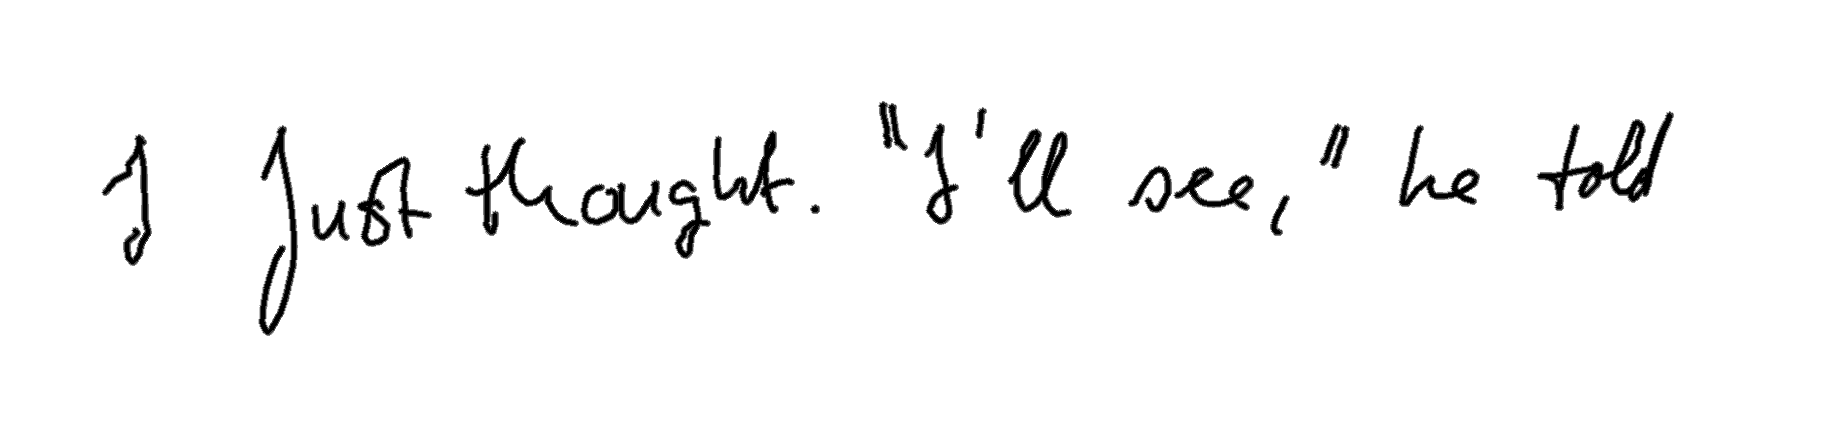 I just thought. "I'll see," he told